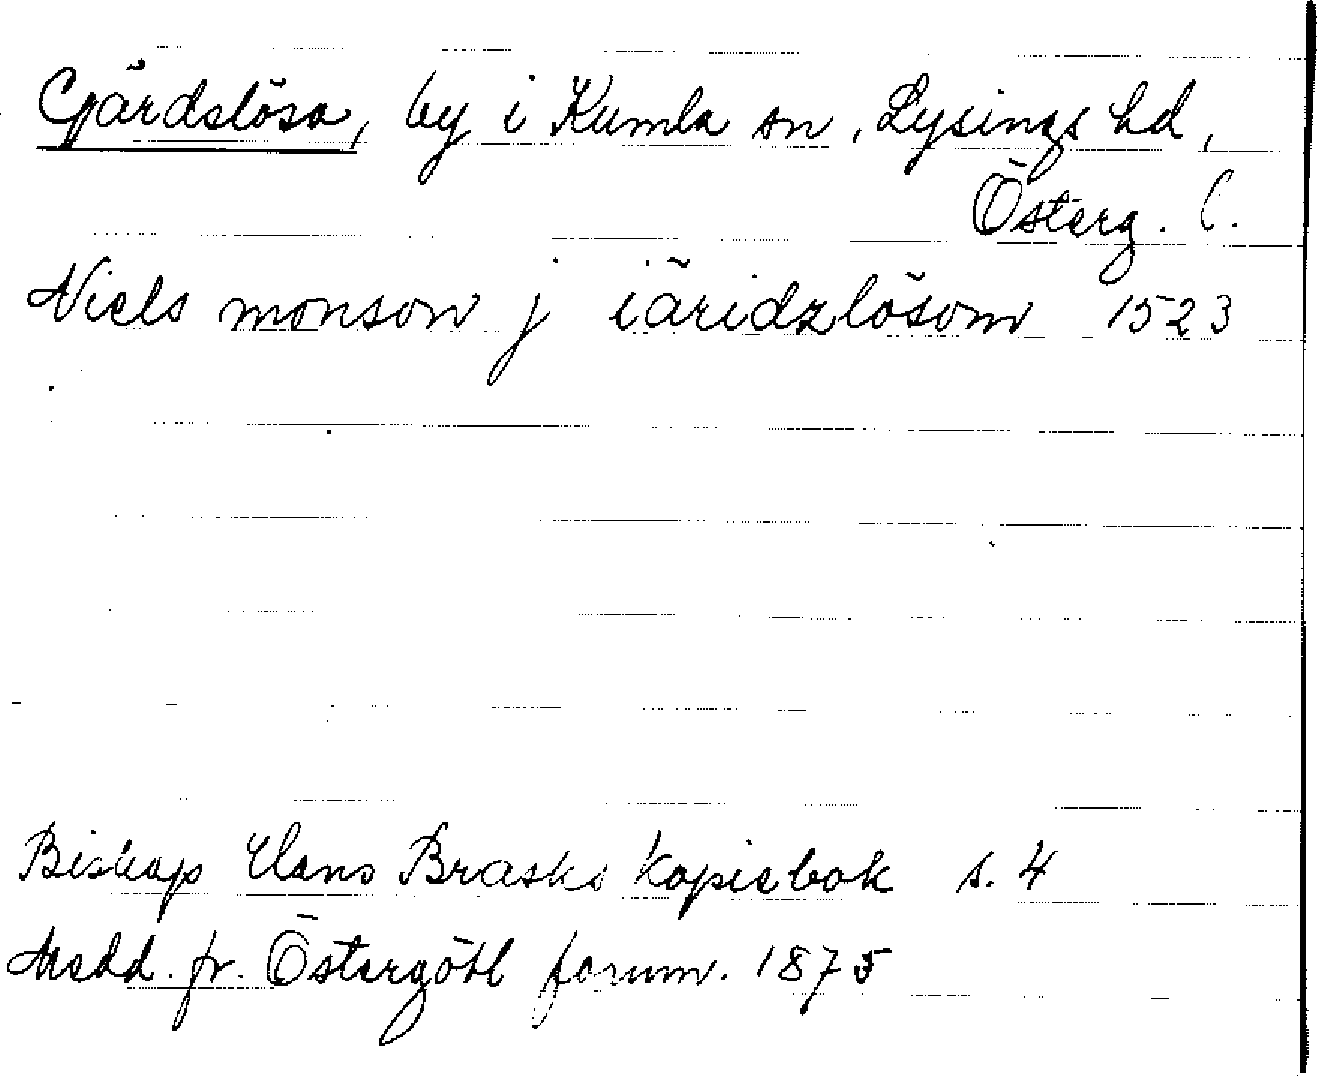 Gärdslösa, by i Kumla sn, Lysings hd,
Österg. l.
Niels monson j iäridzlösom 1523
Biskop Hans Brasks kopiebok s. 4
Medd. fr. Östergötl fornm. 1875